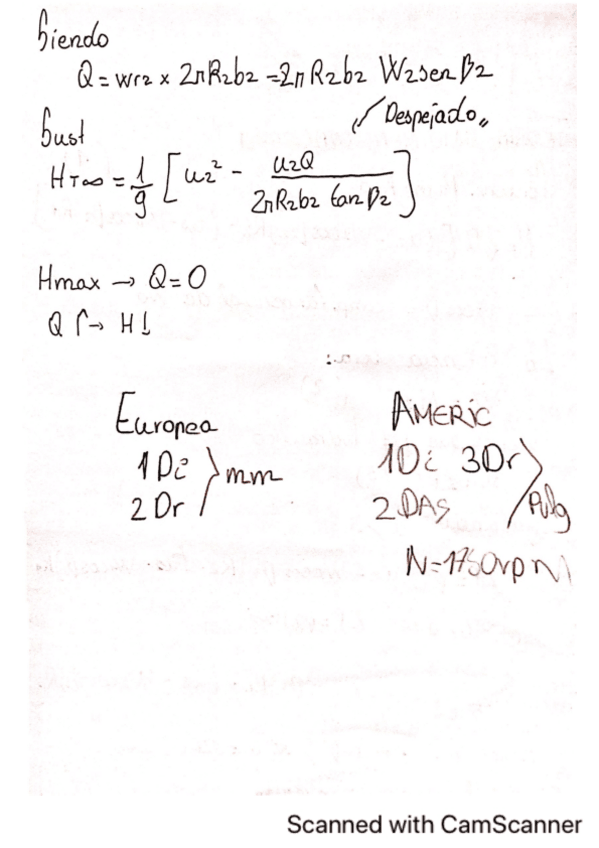 Siendo
Q = wr2 x 2πR2b2 = 2πR2b2 W2senβ2
Despejado,,
Sust
HT∞ = 1/g [ u2² - u2Q / 2πR2b2 tanβ2 ]
Hmax → Q=0
Q ↑→ H↓
Europea
1 Di } mm
2 Dr
AMERIC
1Di 3Dr } Pulg
2 DAS
N=1750rpm
Scanned with CamScanner